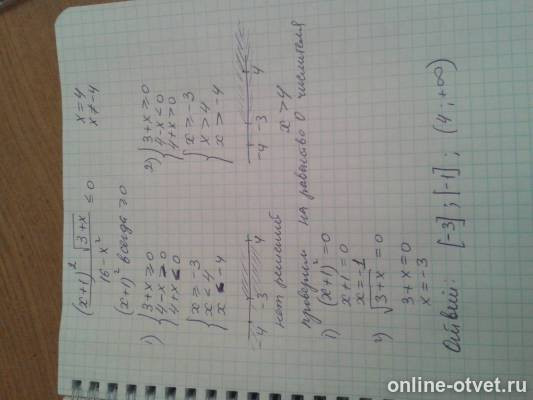 (x+1)² √3+x / 16-x² ≤ 0
x=4
x≠-4
(x+1)² всегда >0
1) { 3+x≥0
4-x>0
4+x<0
{ x≥-3
x<4
x<-4
-4 -3 4
нет решений
2) { 3+x≥0
4-x<0
4+x>0
{ x≥-3
x>4
x>-4
-4 -3 4
x>4
проверяем на равенство 0 числителя
1) (x+1)²=0
x+1=0
x=-1
2) √3+x=0
3+x=0
x=-3
Ответ: [-3]; [-1]; (4;+∞)
online-otvet.ru